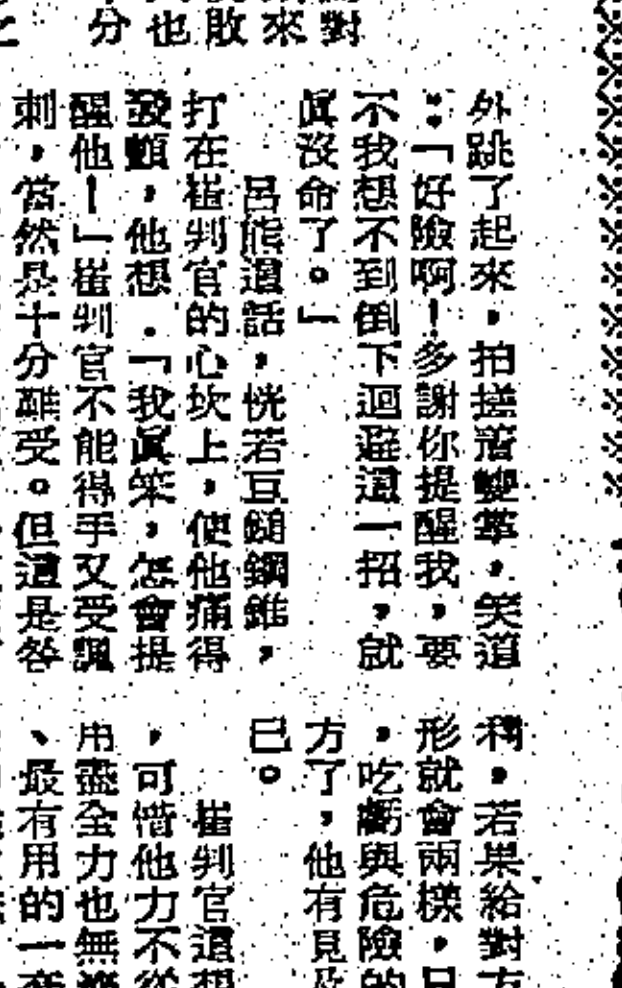 對
來
敗
也
分
外跳了起來，拍搓着雙掌，笑道
：「好險啊！多謝你提醒我，要
不我想不到倒下迴避這一招，就
眞沒命了。」
呂熊這話，恍若巨鎚鋼錐，
打在崔判官的心坎上，使他痛得
發顫，他想．「我眞笨，怎會提
醒他！」崔判官不能得手又受諷
刺，當然是十分難受。但這是咎
，若果給對方
形就會兩樣，
，吃虧與危險的
方了，他有見及
已。
崔判官這想
，可惜他力不從
用盡全力也無
、最有用的一